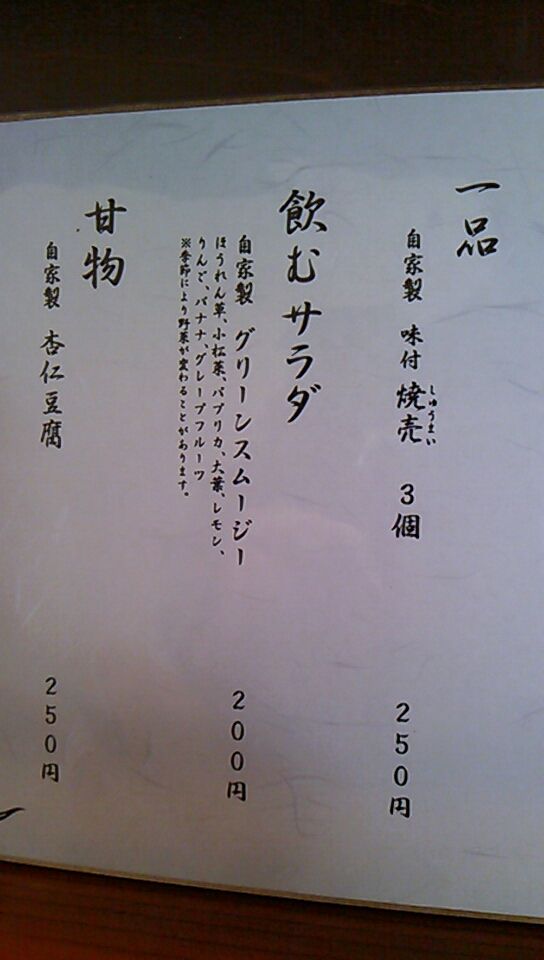 一品
自家製 味付 焼売 3個 250円
しゅうまい
飲むサラダ
自家製 グリーンスムージー 200円
ほうれん草、小松菜、パプリカ、大葉、レモン、
りんご、バナナ、グレープフルーツ
※季節により野菜が変わることがあります。
甘物
自家製 杏仁豆腐 250円